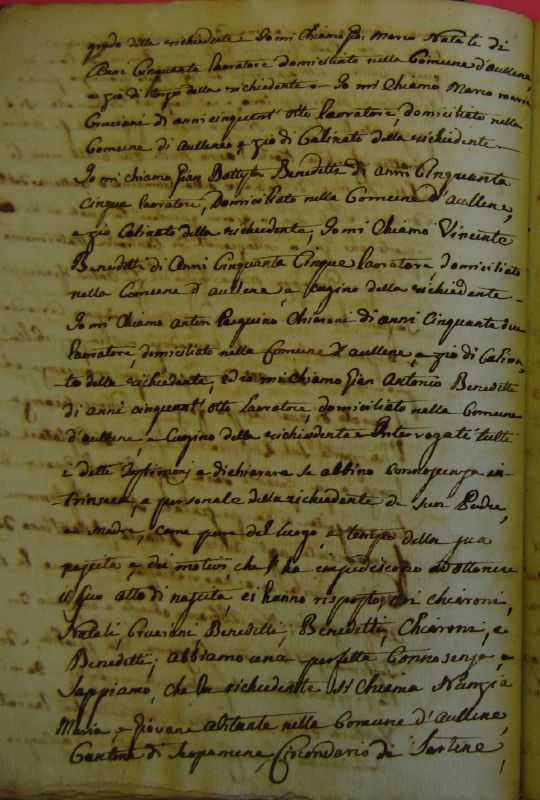 grado della richiedente Io mi chiamo Gio: Marco Natali di
Anni Cinquanta Lavoratore domiciliato nella Comune d'aullene,
e zio di della richiedente Io mi Chiamo Marco maria
Graciani di anni cinquant'otto Lavoratore, domiciliato nella
Comune di aullene e zio di Calinato della richiedente
Io mi chiamo Gian Battista Benedetti di anni Cinquanta
Cinque Lavoratore, Domiciliato nella Comune d'aullene,
e zio Calinato della richiedente, Io mi Chiamo Vincente
Benedetti di Anni Cinquanta Cinque Lavoratore, domiciliato
nella Comune d'aullene, e Cugino della richiedente
Io mi Chiamo anton Pasquino Chiaroni di anni Cinquanta due
Lavoratore, domiciliato nella Comune d'aullene e zio di Calina-
to della richiedente, ed io mi chiamo Gian Antonio Benedetti
di anni cinquant'otto Lavoratore, domiciliato nella Comune
d'aullene e Cugino della richiedente Interrogati tutti
i detti Testimonj a dichiarare se abbino connoscenza in-
trinseca, e personale della richiedente de suoi Padre,
e Madre, come pure del luogo e tempo della sua
nascita e dei motivi, che l'ha impediscono ad ottenere
il suo atto di nascita, ci hanno risposto, Chiaroni,
Natali, Graciani, Benedetti, Benedetti, Chiaroni, e
Benedetti; abbiamo una perfetta Connosenza, e
Sappiamo, che la richiedente si chiama Nunzia
Maria, e Giovane abitante nella Comune d'aullene,
Cantone di Scopamene, Circondario di Sartene,